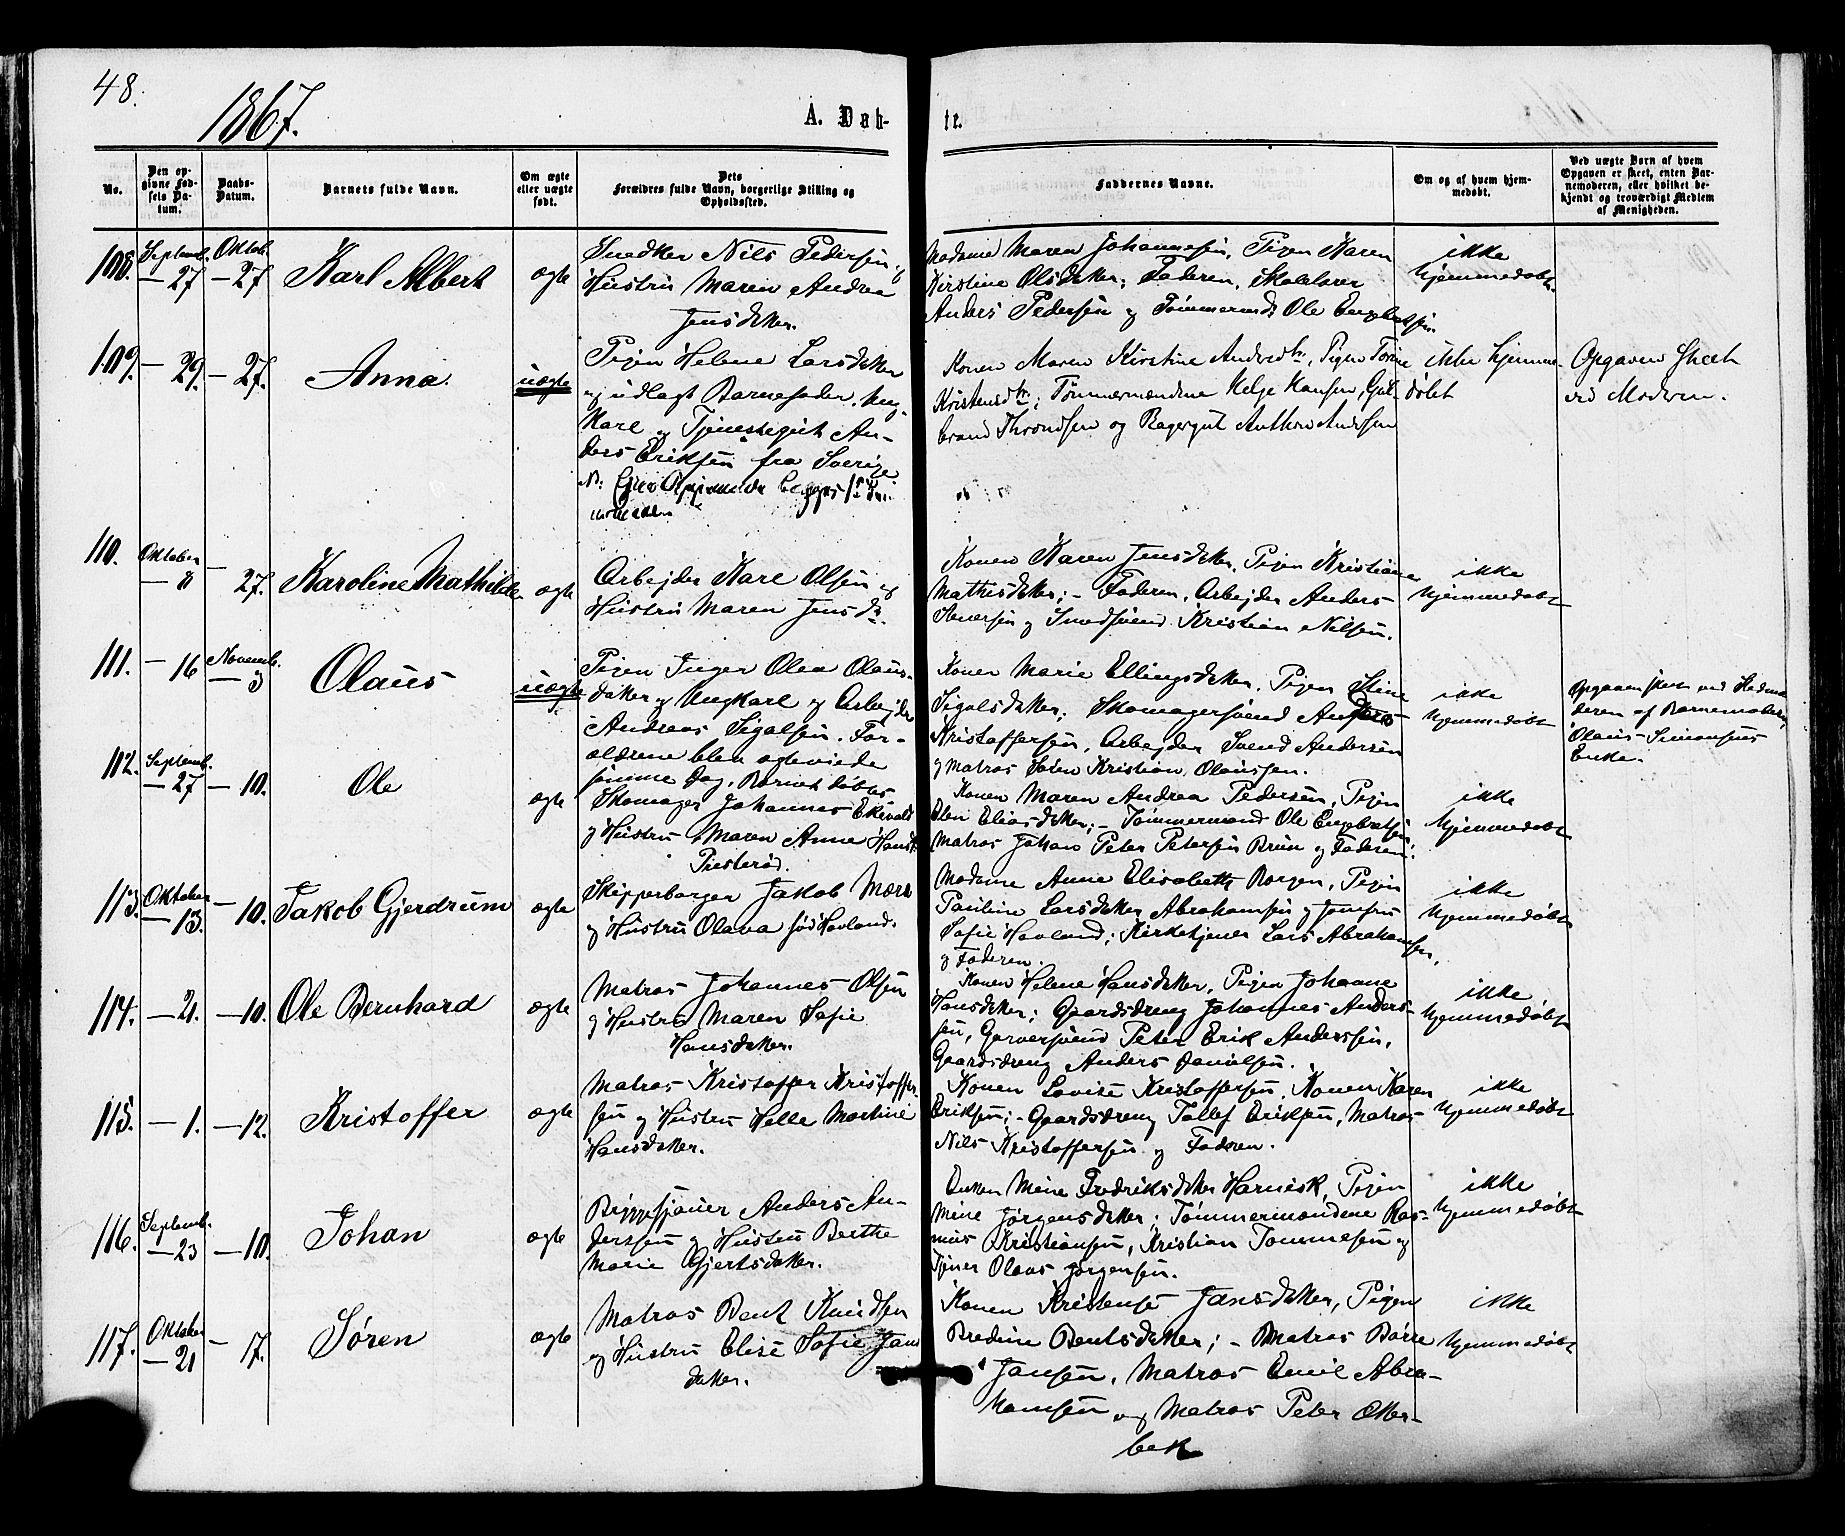 48.
1867.
A. Dåb-
te.
No.
Den op-
givne Fød-
sels Da-
tum.
Daabs-
Datum.
Barnets fulde Navn.
Om ægte
eller uægte
født.
Dets
Forældres fulde Navn, borgerlige Stilling og
Opholdssted.
Faddernes Navne.
Om og af hvem hjem-
medøbt.
Ved uægte Børn af hvem
Opgaven er skeet, enten Bar-
nemoderen, eller hvilket be-
kjendt og troværdigt Medlem
af Menigheden.
108.
Septemb.
— 27
Oktob.
— 27
Karl Albert
ægte
Snedker Nils Pedersen og
Hustru Maren Andrea
Jensdtter.
Madame Maren Johannesen, Pigen Karen
Kirstine Olsdtter; Faderen, Skolelærer
Anders Pedersen og Tømmermd. Ole Engebretsen
ikke
hjemmedøbt.
109.
— 29.
— 27.
Anna.
uægte
Pigen Helene Larsdtter
og udlagt Barnefader, Ung-
karl og Tjenestegut An-
ders Eriksen fra Sverige
Konen Maren Kirstine Andersdtr, Pigen Torine
Kristensdtr; Tømmermændene Helge Hansen, Gul-
brand Throndsen og Bagergut Anthon Andersen
ikke hjemme-
døbt
Opgaven skeet
ved Moderen.
110.
Oktober
— 8
— 27.
Karoline Mathilde
ægte
Arbejder Karl Olsen og
Hustru Maren Jensdr.
Konen Karen Jensdtter, Pigen Kristiane
Mathisdtter; - Faderen, Arbejder Anders
Iversen og Smedsvend Kristian Nilsen.
ikke
hjemmedøbt
111.
— 16
Novemb.
— 3
Olaus
uægte
Pigen Inger Olea Olaus-
datter og Ungkarl og Arbejder
Andreas Sigalsen. For-
ældrene blev ægteviede
samme Dag, Barnet døbtes
Konen Marie Ellingsdtter, Pigen Stine
Sigalsdatter; Skomagersvend Anders
Kristoffersen, Arbejder Svend Andersen
og Matros Søren Kristian Olaussen.
ikke
hjemmedøbt
Opgaven skeet ved Stedmo-
deren af Barnemoderen,
Olaus Simonsens
Enke.
112.
Septemb.
— 27
— 10.
Ole
ægte
Skomager Johannes Ekevald
og Hustru Maren Anne Hansdr
Pusterød.
Konen Maren Andrea Pedersen, Pigen
Elen Eliasdtter; - Tømmermand Ole Engebretsen
Matros Johan Peter Petersen Brun og Faderen.
ikke
hjemmedøbt
113.
Oktober
— 13.
— 10.
Jakob Gjerdrum
ægte
Skipperborger Jakob Mørk
og Hustru Olava fød Hovland.
Madame Anne Elisabeth Borgen, Pigen
Pauline Larsdatter Abrahamsen og Jomfru
Sofie Hovland; Kirketjener Lars Abrahamsen,
og Faderen.
ikke
hjemmedøbt
114.
— 21.
— 10.
Ole Bernhard
ægte
Matros Johannes Olsen
og Hustru Maren Sofie
Hansdatter.
Konen Helene Hansdatter, Pigen Johanne
Hansdatter; Gaardsdreng Johannes Anders-
sen, Garversvend Peter Erik Anderssen,
Gaardsdreng Anders Danielsen.
ikke
hjemmedøbt
115.
— 1.
— 12.
Kristoffer
ægte
Matros Kristoffer Kristoffer-
sen og Hustru Helle Martine
Hansdatter.
Konen Lovise Kristoffersen, Konen Karen
Eriksen; - Gaardsdreng Tollef Eriksen, Matros
Nils Kristoffersen og Faderen.
ikke
hjemmedøbt
116.
Septemb.
— 23
— 10.
Johan
ægte
Bryggesjouer Anders An-
derssen og Hustru Berthe
Marie Gjertsdatter.
Enken Mine Fredriksdatter Harnisk, Pigen
Mine Jørgensdatter; Tømmermændene Ras-
mus Kristiansen, Kristian Tommesen og
Tjener Olaus Jørgensen.
ikke
hjemmedøbt
117.
Oktober
— 21
— 17.
Søren
ægte
Matros Bent Knudsen
og Hustru Elise Sofie Jans
datter.
Konen Kristense Jansdatter, Pigen
Bredine Bentsdatter; - Matros Børre
Jansen, Matros Emil Abra-
hamsen og Matros Peter Otter-
bek
ikke
hjemmedøbt